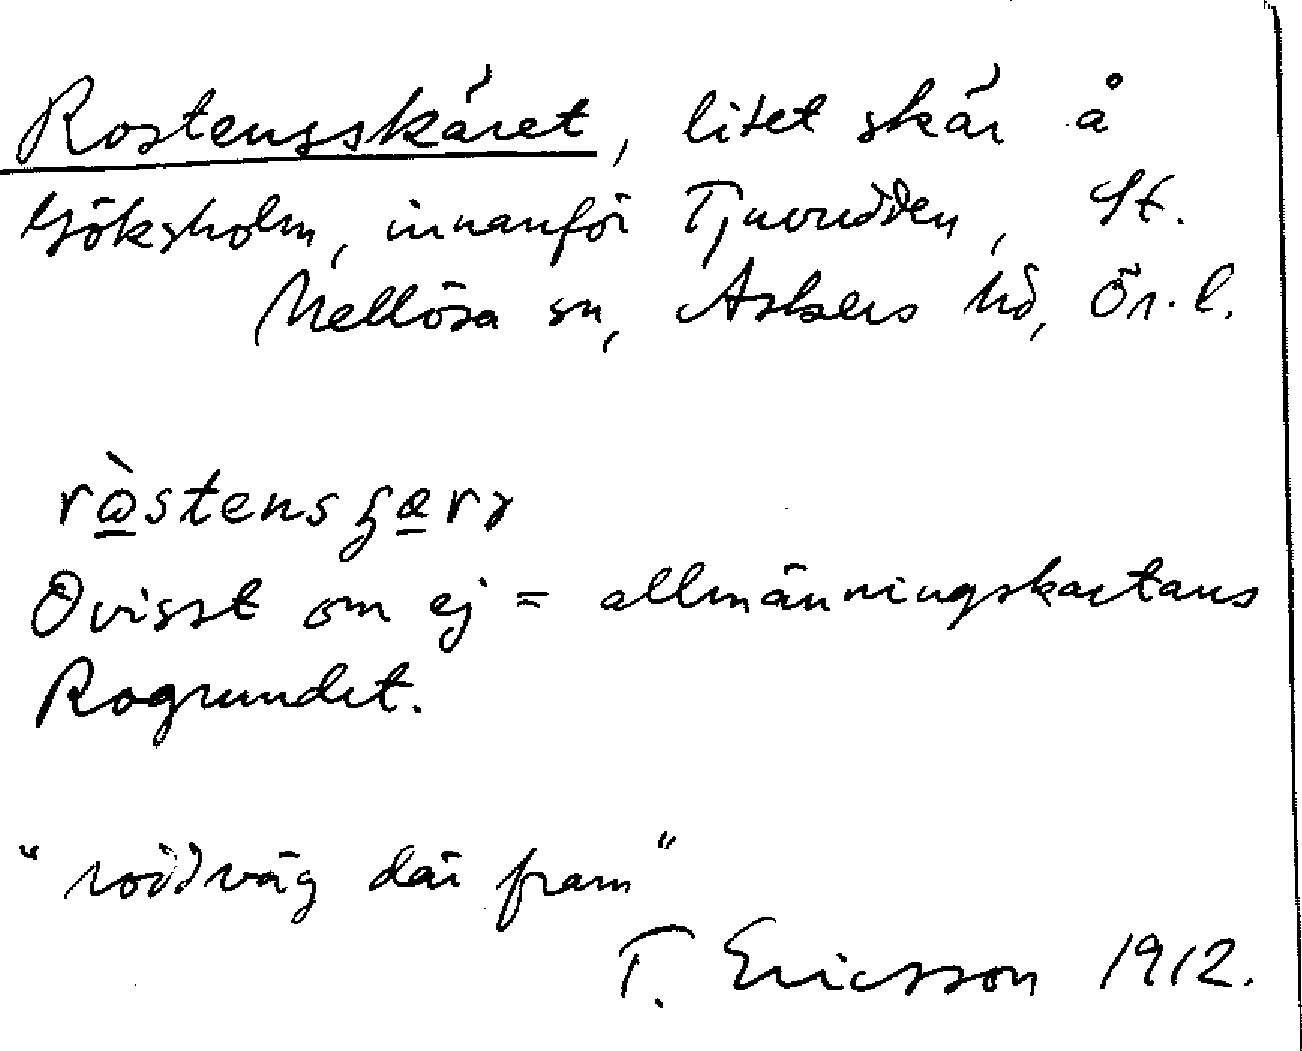 Rostensskäret, litet skär å
Göksholm, innanför Tjuvudden, St.
Mellösa sn, Askers hd, Ör. l.
Ovisst om ej = allmänningskartans
Rogrundet.
"roddväg där fram"
T. Ericsson 1912.